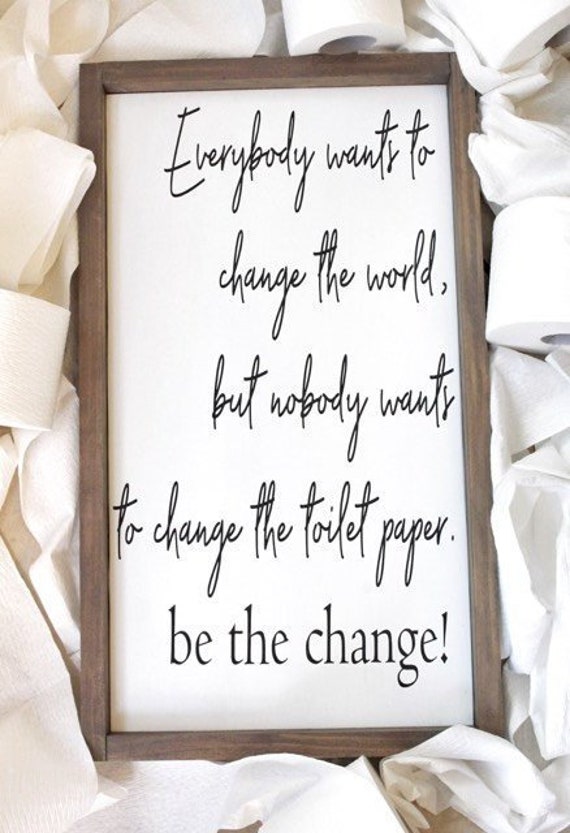 Everybody wants to
change the world,
but nobody wants
to change the toilet paper.
be the change!